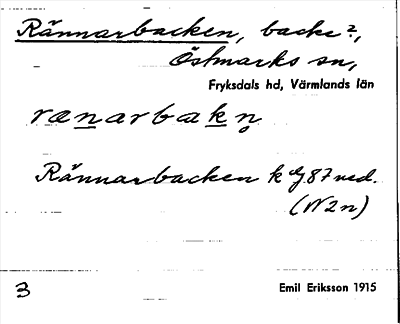 Rännarbacken, backe?,
Östmarks sn,
Fryksdals hd, Värmlands län
rænarbakn̥
Rännarbacken k 87 ned.
(N2n)
3
Emil Eriksson 1915